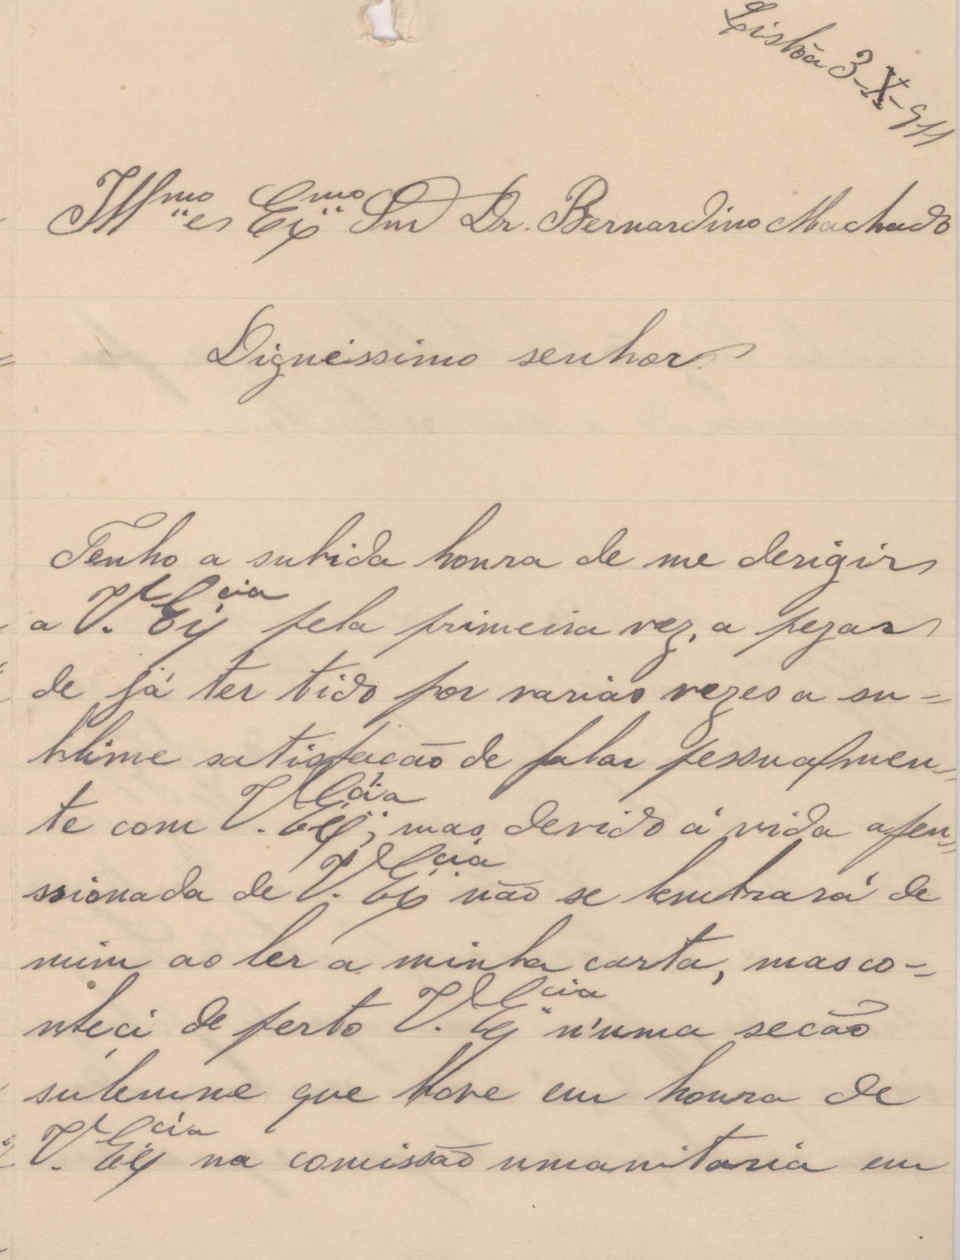 Lisbôa 3-X-911
Illmo e Exmo Snr Dr. Bernardino Machado
Digneissimo senhor
Tenho a subida honra de me derigir
a V. Excia pela primeira vez, a pezar
de já ter tido por varias vezes a su-
blime satisfação de falar pessualmen-
te com V. Excia; mas devido á vida apen-
ssionada de V. Excia não se lembrará de
mim ao ler a minha carta, mas co-
nheci de perto V. Excia n'uma secão
sulemne que hove em honra de
V. Excia na comissão umanitaria em